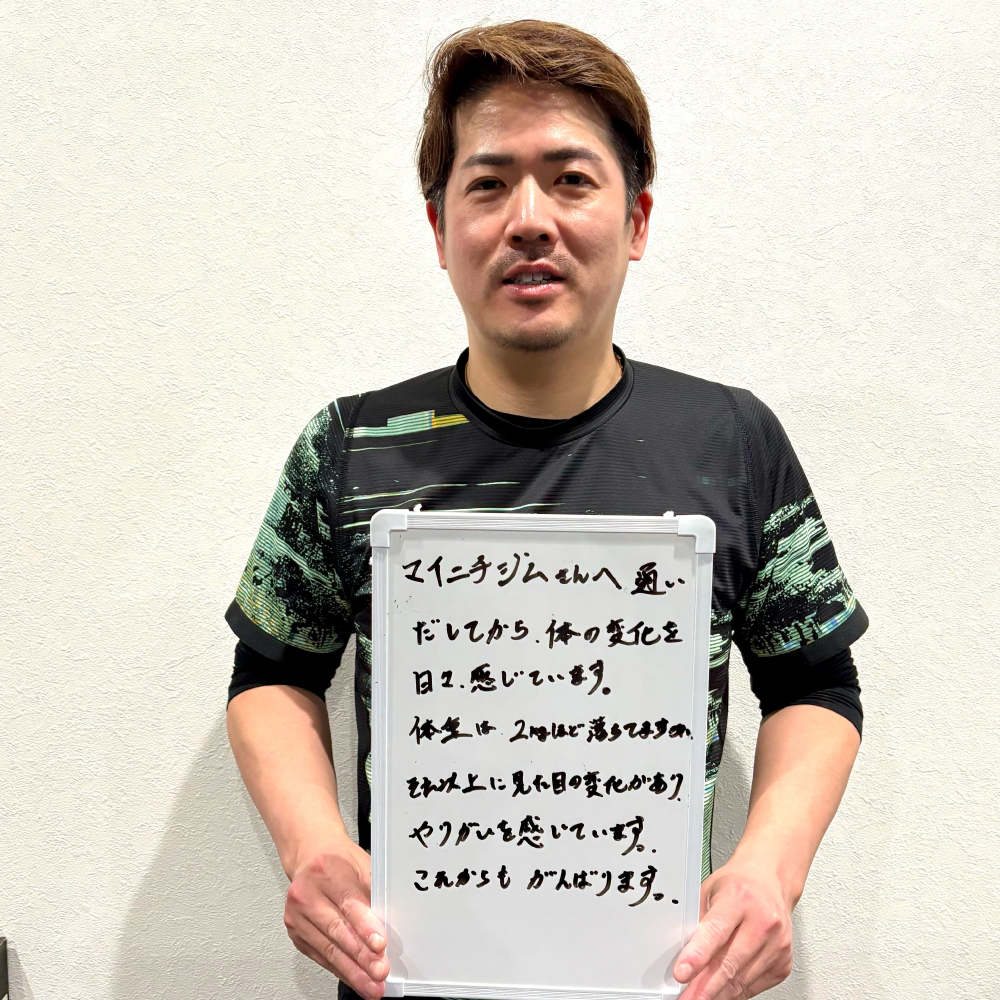 マイニチジムさんへ 通い
だしてから、体の変化を
日々、感じています。
体重は 2kgほど落ちてますが、
それ以上に見た目の変化があり、
やりがいを感じています。
これからも がんばります。